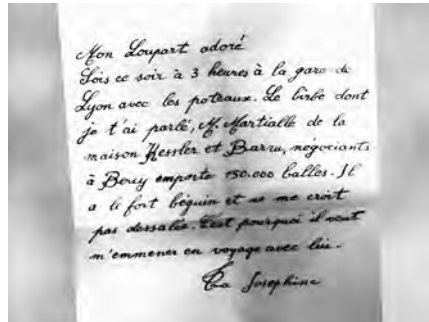 Mon Loupart adoré
Sois ce soir à 3 heures à la gare de
Lyon avec les poteaux. Le birbe dont
je t'ai parlé, M. Martialle de la
maison Kessler et Barru, négociants
à Bercy emporte 150.000 balles. Il
a le fort béguin et ne me croit
pas dessalée. C'est pourquoi il veut
m'emmener en voyage avec lui.
Ta Josephine